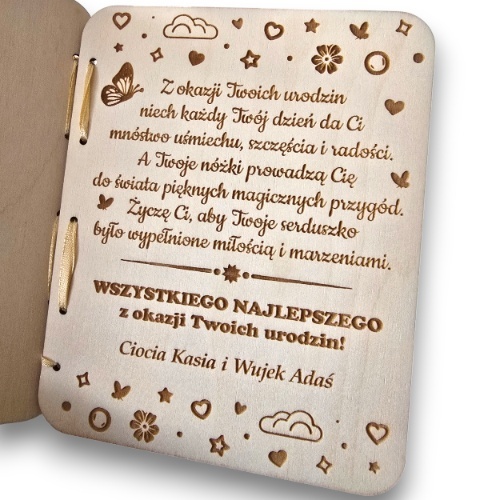 Z okazji Twoich urodzin
niech każdy Twój dzień da Ci
mnóstwo uśmiechu, szczęścia i radości.
A Twoje nóżki prowadzą Cię
do świata pięknych magicznych przygód.
Życzę Ci, aby Twoje serduszko
było wypełnione miłością i marzeniami.
WSZYSTKIEGO NAJLEPSZEGO
z okazji Twoich urodzin!
Ciocia Kasia i Wujek Adaś